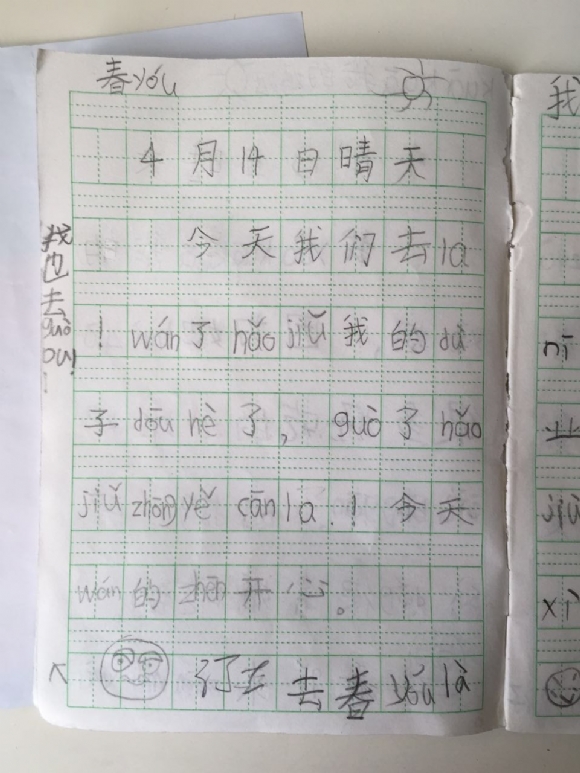 春yóu
4月14日晴天
今天我们去la
！wán了hǎojiǔ我的dù
子dōuhè了，guò了hǎo
jiǔzhōngyěcānla.！今天
wán的zhēn开心。
去春yóulà
我也去guò
ou!!
我
nī
业
jiù
xì